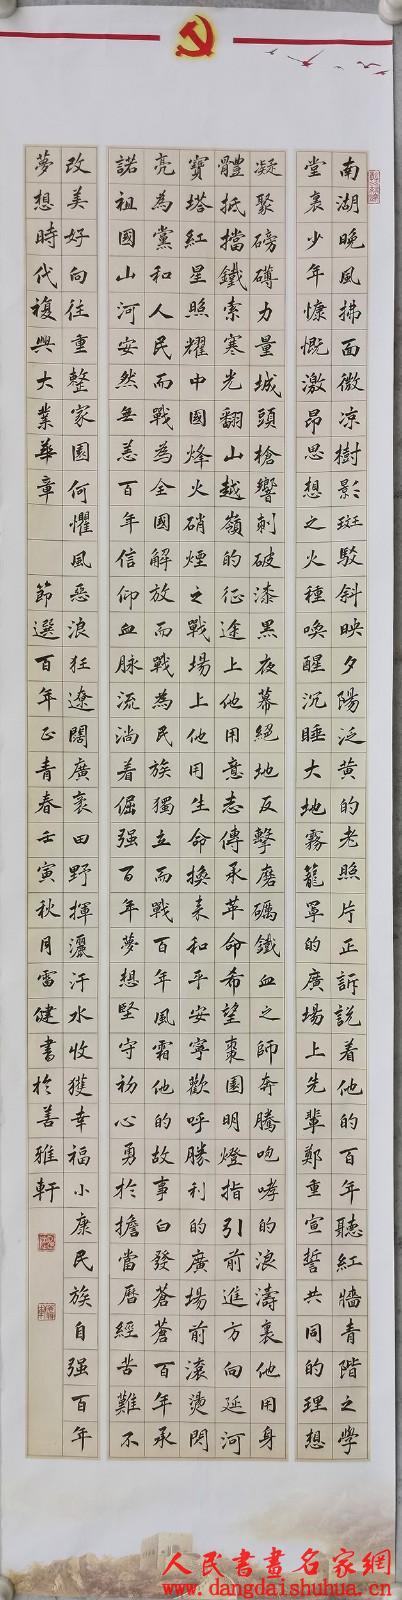 南湖晚風拂面微凉樹影斑駁斜映夕陽泛黄的老照片正訴説着他的百年聽紅牆青階之學
堂裏少年慷慨激昂思想之火種喚醒沉睡大地霧籠罩的廣場上先輩鄭重宣誓共同的理想
凝聚磅礴力量城頭槍響刺破漆黑夜幕絕地反擊磨礪鐵血之師奔騰咆哮的浪濤裏他用身
體抵擋鐵索寒光翻山越嶺的征途上他用意志傳承革命希望棗園明燈指引前進方向延河
寶塔紅星照耀中國烽火硝煙之戰場上他用生命換来和平安寧歡呼勝利的廣場前滾燙閃
亮為黨和人民而戰為全國解放而戰為民族獨立而戰百年風霜他的故事白發蒼蒼百年承
諾祖國山河安然無恙百年信仰血脉流淌着倔强百年夢想堅守初心勇於擔當曆經苦難不
改美好向往重整家園何懼風惡浪狂遼闊廣袤田野揮灑汗水收獲幸福小康民族自强百年
夢想時代複興大業華章 節選百年正青春壬寅秋月雷健書於善雅軒
人民書畫名家網
www.dangdaishuhua.cn